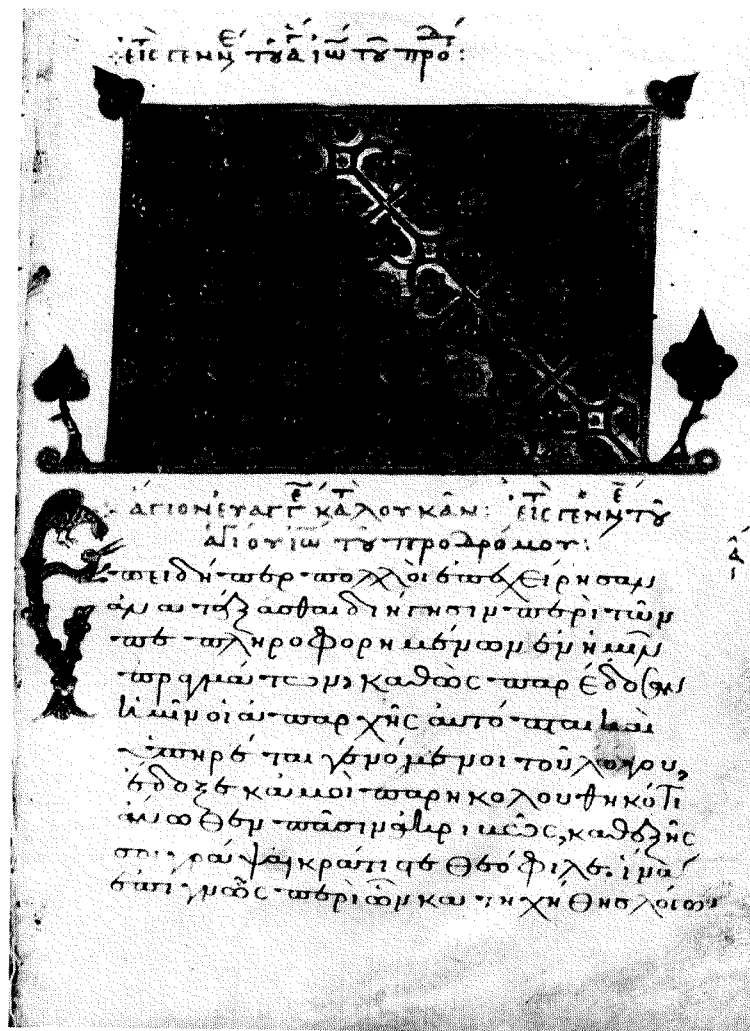 εἰς γενν τοῦ ἁγί ἰω τοῦ προδ:
ἅγιον ευαγγ κατ λουκᾶν: εἰς γενν τοῦ
ἁγίου ἰω τοῦ προδρόμου:
Ἐπειδήπερ πολλοὶ ἐπεχείρησαν
ἀνατάξασθαι διήγησιν περὶ τῶν
πεπληροφορημένων ἐν ἡμῖν
πραγμάτων, καθὼς παρέδοσαν
ἡμῖν οἱ ἀπαρχῆς αὐτόπται καὶ
ὑπηρέται γενόμενοι τοῦ λόγου,
ἔδοξε κἀμοὶ παρηκολουθηκότι
ἄνωθεν πᾶσιν ἀκριβῶς, καθεξῆς
σοι γράψαι κράτιστε θεόφιλε. ἵνα
ἐπιγνῶς περὶ ὧν κατηχήθης λόγων